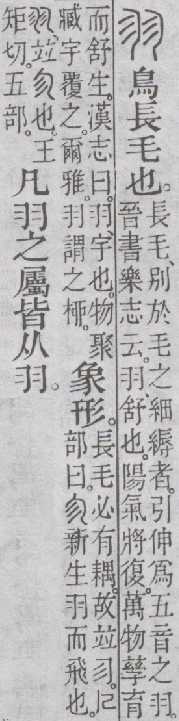 羽
鳥長毛也。
長毛、別於毛之細縟者。引伸爲五音之羽。
晉書樂志云。羽、舒也。陽氣將復。萬物孳育
而舒生。漢志曰。羽、宇也。物聚
臧宇覆之。爾雅。羽謂之柳。
象形。
長毛必有耦。故竝㐱。𠘧
部曰。㐱新生羽而飛也。
羽竝㐱也。王
矩切。五部。
凡羽之屬皆从羽。